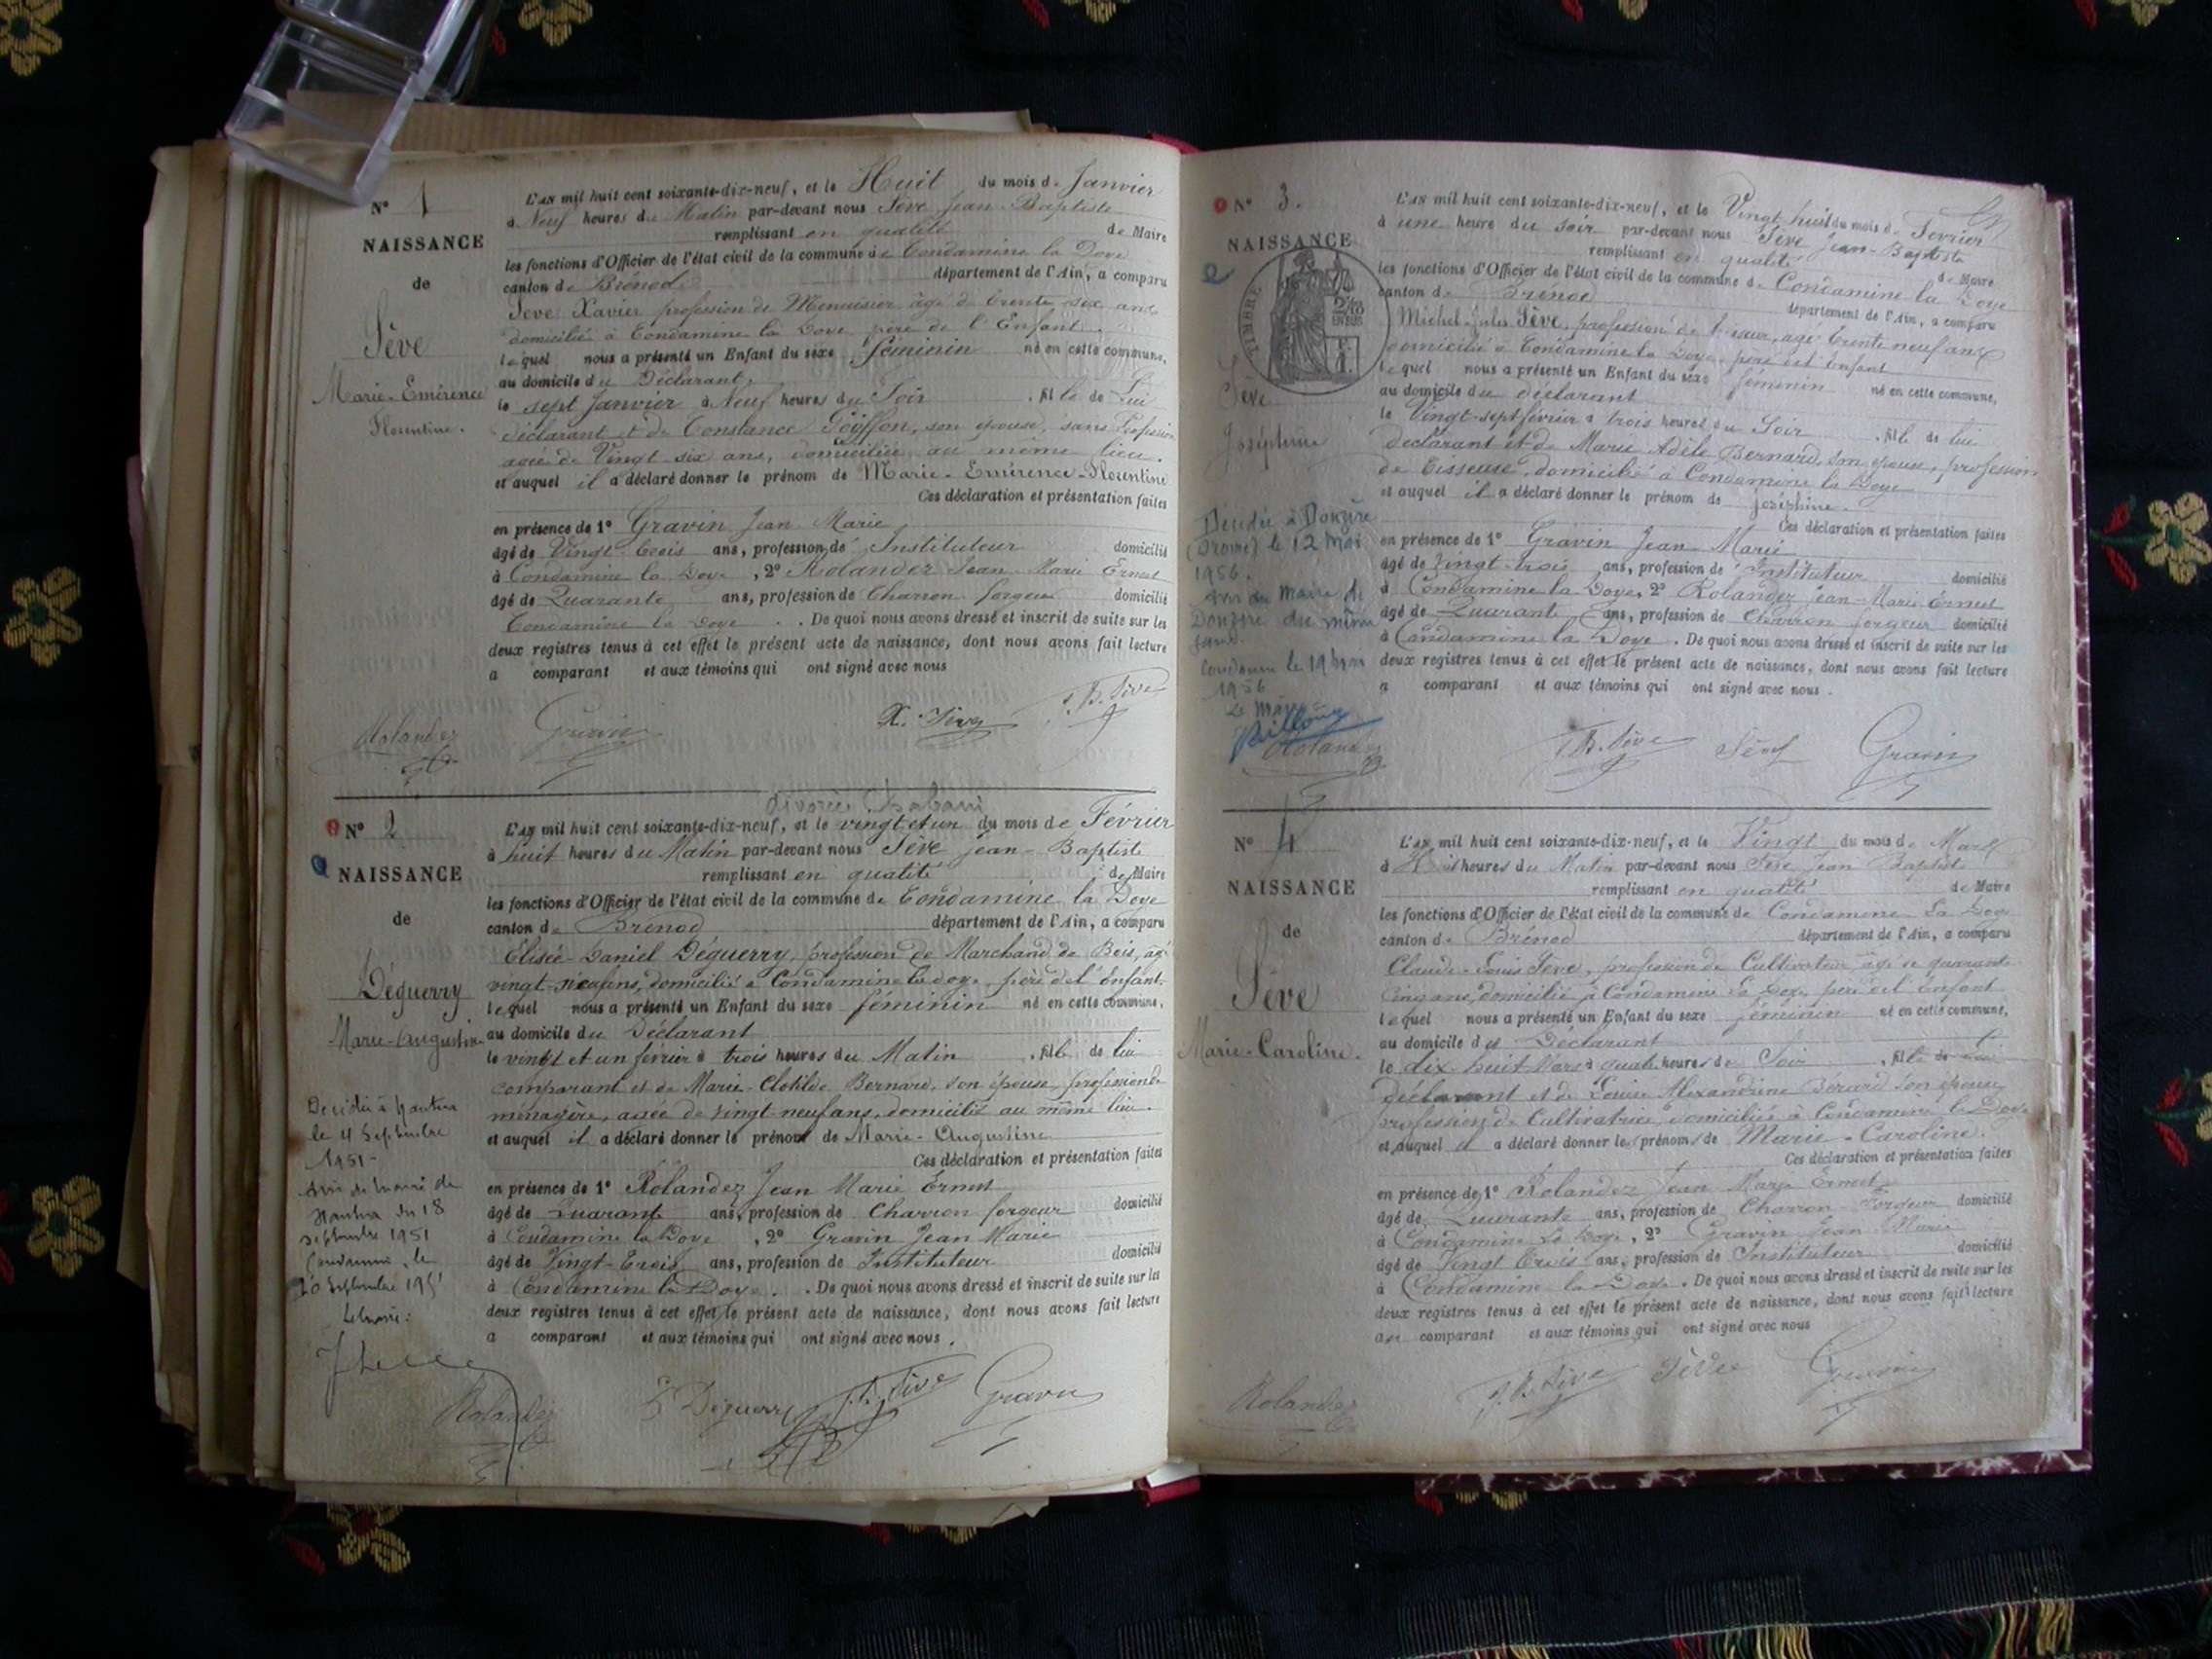 N° 1
NAISSANCE
de
Sève
Marie-Emérence
Florentine.
L'AN mil huit cent soixante-dix-neuf, et le Huit du mois de Janvier
à Neuf heures du Matin par-devant nous Sève Jean-Baptiste
remplissant en qualité de Maire
les fonctions d'Officier de l'état civil de la commune de Condamine la Doye
canton de Brénod département de l'Ain, a comparu
Sève Xavier profession de Menuisier âgé de trente six ans
domicilié à Condamine la Doye père de l'Enfant.
lequel nous a présenté un Enfant du sexe féminin né en cette commune,
au domicile du Déclarant,
le sept Janvier à Neuf heures du Soir, fille de Lui
déclarant et de Constance Goÿffon, son épouse, sans Profession
agée de Vingt six ans, domiciliée au même lieu.
et auquel il a déclaré donner le prénom de Marie-Emérence-Florentine
Ces déclaration et présentation faites
en présence de 1° Gravin Jean Marie
âgé de Vingt trois ans, profession de Instituteur domicilié
à Condamine la Doye, 2° Rolandez Jean Marie Ernest
âgé de Quarante ans, profession de Charron forgeur domicilié
Condamine la Doye. De quoi nous avons dressé et inscrit de suite sur les
deux registres tenus à cet effet le présent acte de naissance, dont nous avons fait lecture
a comparant et aux témoins qui ont signé avec nous
Rolandez Gravin X. Sève J. B. Sève
N° 2
NAISSANCE
de
Déguerry
Marie-Augustine
Decédée à Nantua
le 4 Septembre
1951-
Avis du Maire de
Nantua du 18
Septembre 1951
Condamine, le
20 Septembre 1951
Le Maire:
divorcée
L'AN mil huit cent soixante-dix-neuf, et le vingt et un du mois de Février
à huit heures du Matin par-devant nous Sève Jean-Baptiste
remplissant en qualité de Maire
les fonctions d'Officier de l'état civil de la commune de Condamine la Doye
canton de Brénod département de l'Ain, a comparu
Elisée-Daniel Déguerry, profession de Marchand de Bois, agé
vingt-six ans, domicilié à Condamine la doye, père de l'Enfant.
lequel nous a présenté un Enfant du sexe féminin né en cette commune,
au domicile du Déclarant
le vingt et un février à trois heures du Matin, fille de lui
comparant et de Marie-Clotilde Bernard, son épouse, profession de
ménagère, agée de vingt-neuf ans, domiciliée au même lieu.
et auquel il a déclaré donner le prénom de Marie-Augustine
Ces déclaration et présentation faites
en présence de 1° Rolandez Jean Marie Ernest
âgé de Quarante ans, profession de Charron forgeur domicilié
à Condamine la Doye, 2° Gravin Jean Marie
âgé de Vingt-Trois ans, profession de Instituteur domicilié
à Condamine la Doye. De quoi nous avons dressé et inscrit de suite sur les
deux registres tenus à cet effet le présent acte de naissance, dont nous avons fait lecture
a comparant et aux témoins qui ont signé avec nous.
Rolandez E Déguerry J. B. Sève Gravin
N° 3.
NAISSANCE
TIMBRE
Sève
Joséphine
Décédée à Donzère
(Drome) le 12 Mai
1956.
Avis du Maire de
Donzère du même
jour.
Condamine le 19 Mai
1956
Le Maire
L'AN mil huit cent soixante-dix-neuf, et le Vingt-huit du mois de Février
à une heure du soir par-devant nous Sève Jean-Baptiste
remplissant en qualité de Maire
les fonctions d'Officier de l'état civil de la commune de Condamine la Doye
canton de Brénod département de l'Ain, a comparu
Michel-Jules Sève, profession de agé trente neuf ans
domicilié à Condamine la Doye, père de l'Enfant
lequel nous a présenté un Enfant du sexe féminin né en cette commune,
au domicile du déclarant
le Vingt-sept février à trois heures du Soir, fille de lui
déclarant et de Marie Adèle Bernard, son épouse, profession
de Tisseuse, domiciliée à Condamine la Doye
et auquel il a déclaré donner le prénom de Joséphine.
Ces déclaration et présentation faites
en présence de 1° Gravin Jean Marie
âgé de Vingt-trois ans, profession de Instituteur domicilié
à Condamine la Doye, 2° Rolandez Jean-Marie Ernest
âgé de Quarante ans, profession de Charron forgeur domicilié
à Condamine la Doye. De quoi nous avons dressé et inscrit de suite sur les
deux registres tenus à cet effet le présent acte de naissance, dont nous avons fait lecture
a comparant et aux témoins qui ont signé avec nous.
Rolandez J. B. Sève Sève Gravin
N° 4
NAISSANCE
de
Sève
Marie-Caroline.
L'AN mil huit cent soixante-dix-neuf, et le Vingt du mois de Mars
à Huit heures du Matin par-devant nous Sève Jean Baptiste
remplissant en qualité de Maire
les fonctions d'Officier de l'état civil de la commune de Condamine La Doye
canton de Brénod département de l'Ain, a comparu
Claude-Louis Sève, profession de Cultivateur âgé de quarante
cinq ans, domicilié à Condamine La Doye, père de l'Enfant
lequel nous a présenté un Enfant du sexe féminin né en cette commune,
au domicile du Déclarant
le dix-huit Mars à quatre heures du Soir, fille de Lui
déclarant et de Louise Alexandrine Bérard son épouse
profession de Cultivatrice, domiciliée à Condamine la Doye
et auquel il a déclaré donner le prénom de Marie-Caroline.
Ces déclaration et présentation faites
en présence de 1° Rolandez Jean Marie Ernest
âgé de Quarante ans, profession de Charron Forgeur domicilié
à Condamine La Doye, 2° Gravin Jean Marie
âgé de Vingt trois ans, profession de Instituteur domicilié
à Condamine la Doye. De quoi nous avons dressé et inscrit de suite sur les
deux registres tenus à cet effet le présent acte de naissance, dont nous avons fait lecture
au comparant et aux témoins qui ont signé avec nous
Rolandez J. B. Sève Sève Gravin